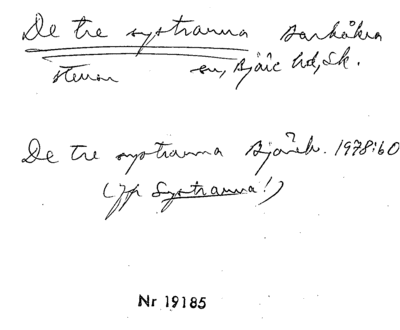 De tre systrarna Barkåkra
stenar sn, Bjäre hd, Sk.
De tre systrarna Bjäreh. 1978:60
(Jfr Systrarna!)
Nr 19185